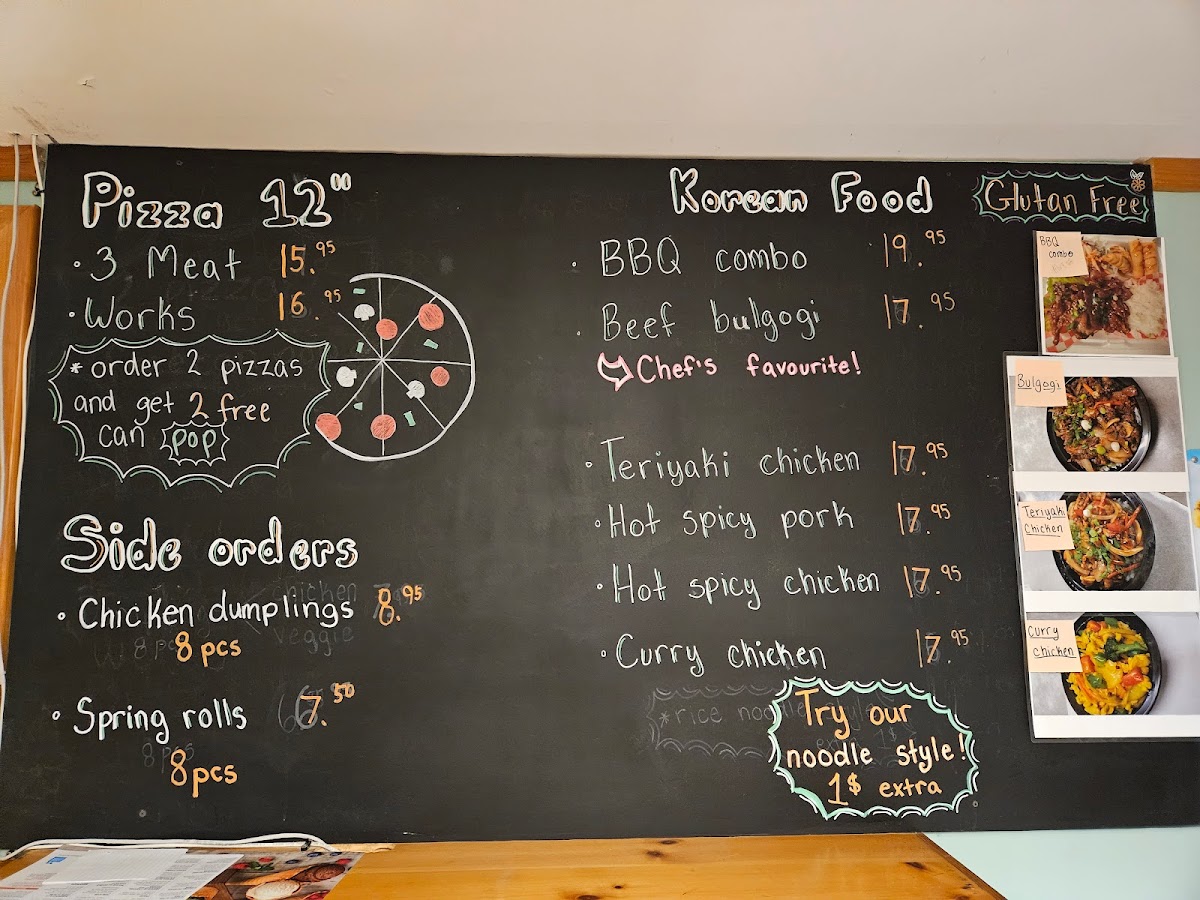 Pizza 12"
· 3 Meat 15.95
· Works 16.95
* order 2 pizzas
and get 2 free
can pop
Side orders
· Chicken dumplings 8.95
8 pcs
· Spring rolls 7.50
8 pcs
Korean Food
· BBQ combo 19.95
· Beef bulgogi 17.95
Chef's favourite!
· Teriyaki chicken 17.95
· Hot spicy pork 17.95
· Hot spicy chicken 17.95
· Curry chicken 17.95
Try our
noodle style!
1$ extra
Glutan Free
BBQ
combo
Bulgogi
Teriyaki
Chicken
Curry
chicken